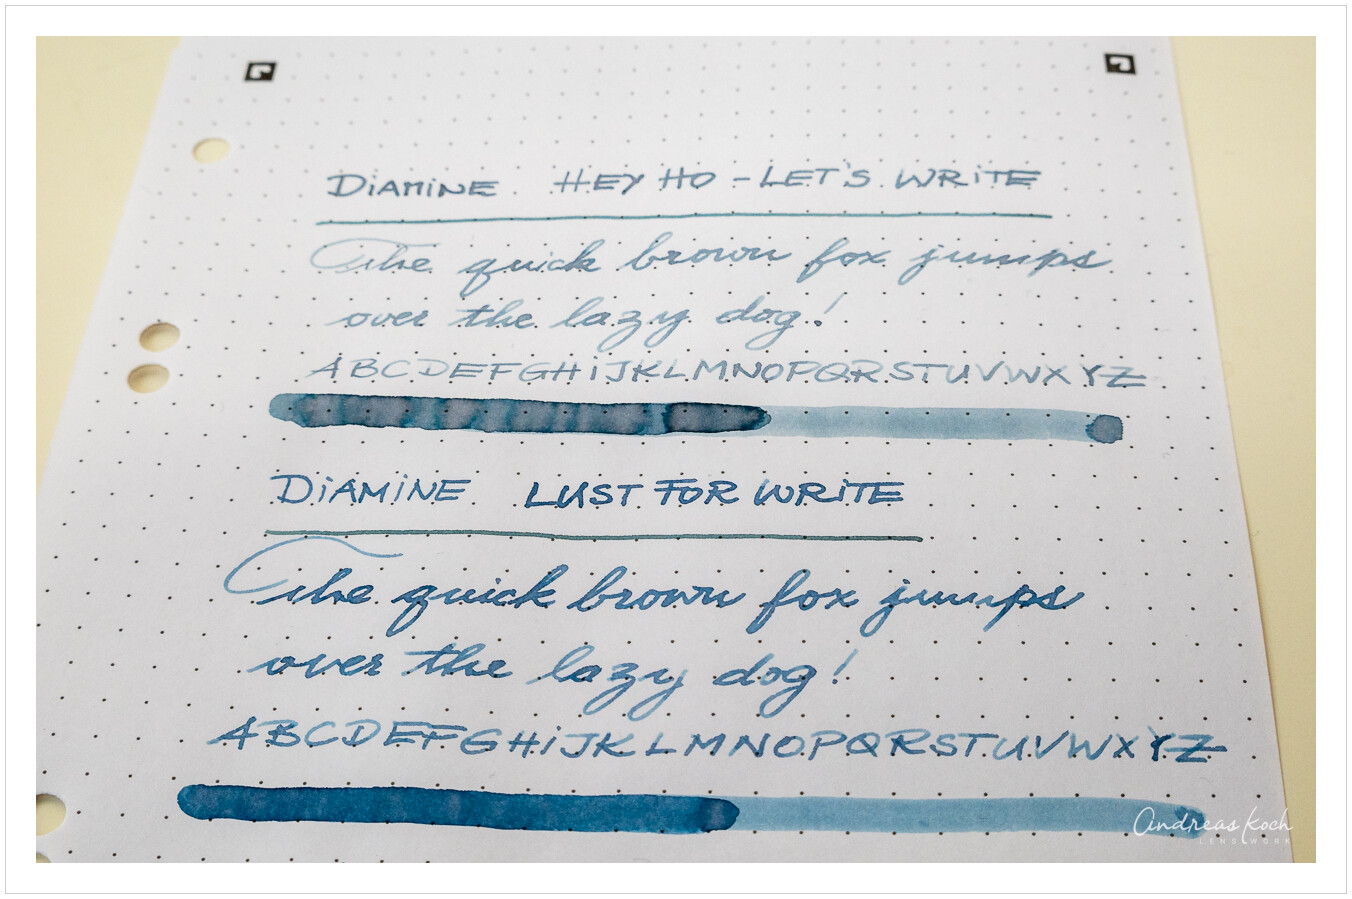 DiAMiNE HEY HO - LET'S WRiTE
The quick brown fox jumps
over the lazy dog!
ABCDEFGHiJKLMNOPQRSTUVWXYZ
DiAMiNE LUST FOR WRiTE
The quick brown fox jumps
over the lazy dog!
ABCDEFGHiJKLMNOPQRSTUVWXYZ
andreas koch
LENSWORK